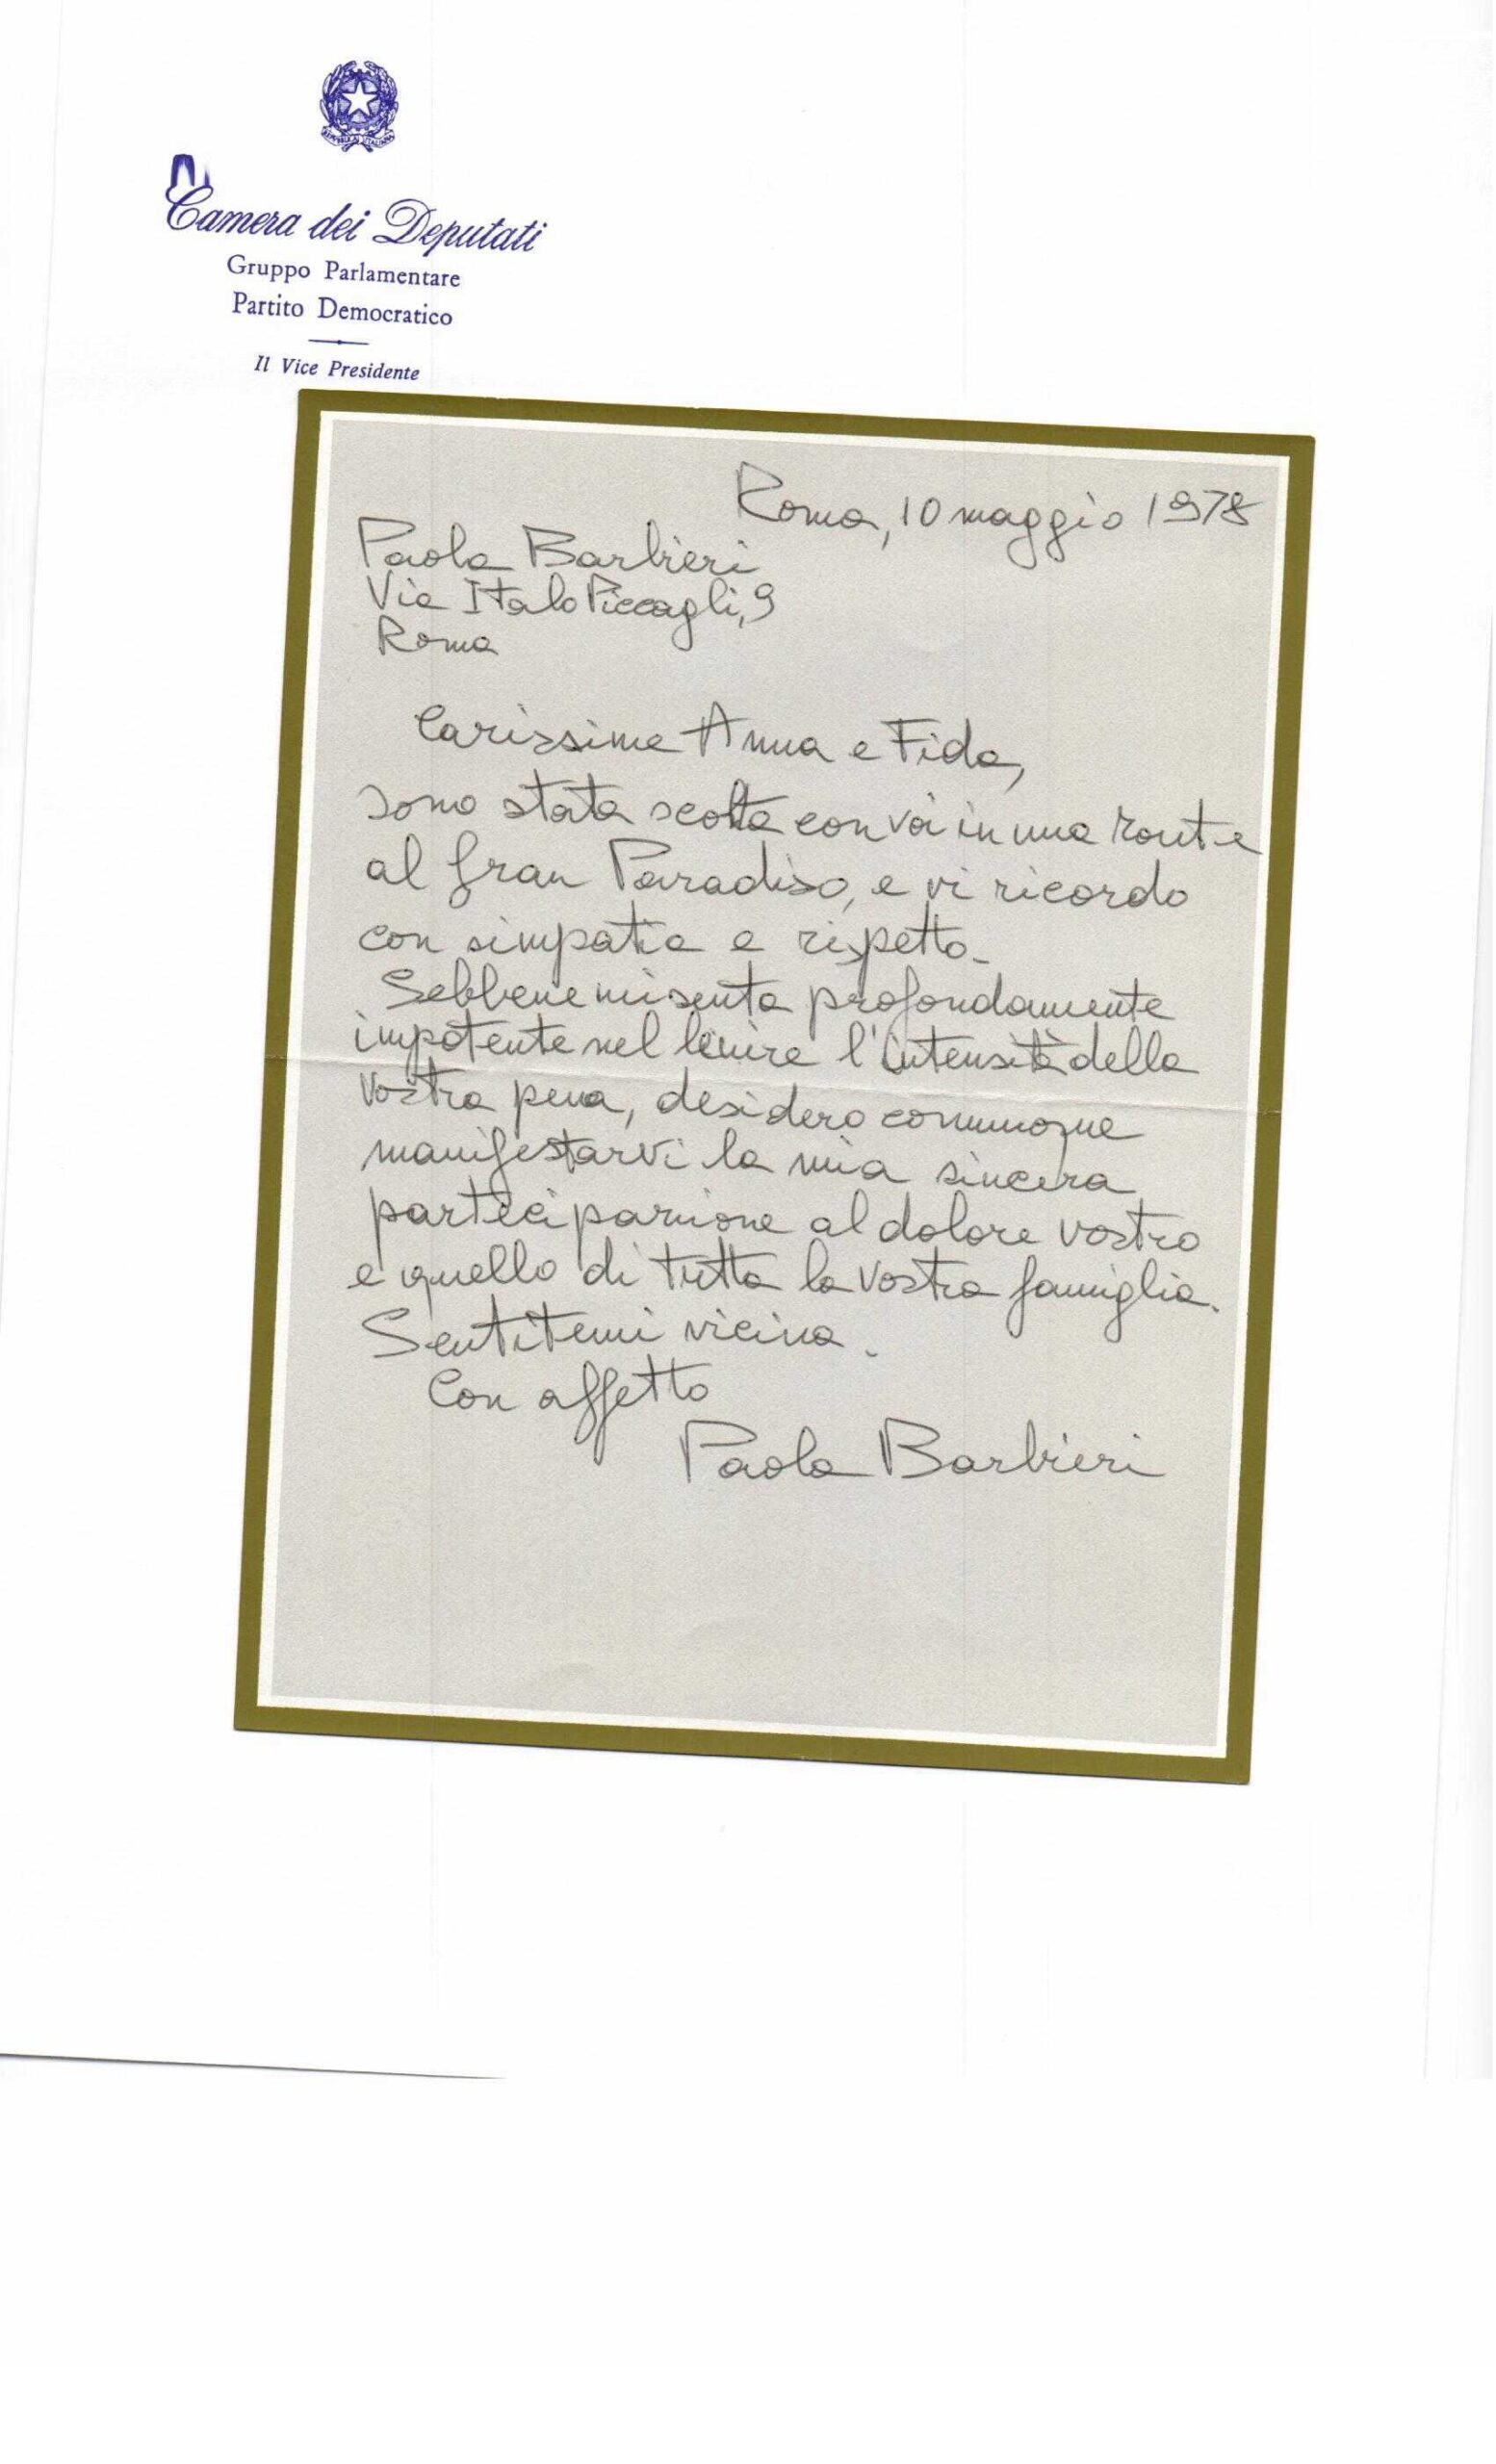 REPUBBLICA ITALIANA
Camera dei Deputati
Gruppo Parlamentare
Partito Democratico
Il Vice Presidente
Roma, 10 maggio 1978
Paola Barbieri
Via Italo Piccagli, 9
Roma
Carissime Anna e Fida,
sono stata scolta con voi in una route
al Gran Paradiso, e vi ricordo
con simpatia e rispetto.
Sebbene mi senta profondamente
impotente nel lenire l'intensità della
vostra pena, desidero comunque
manifestarvi la mia sincera
partecipazione al dolore vostro
e quello di tutta la vostra famiglia.
Sentitemi vicina.
Con affetto
Paola Barbieri